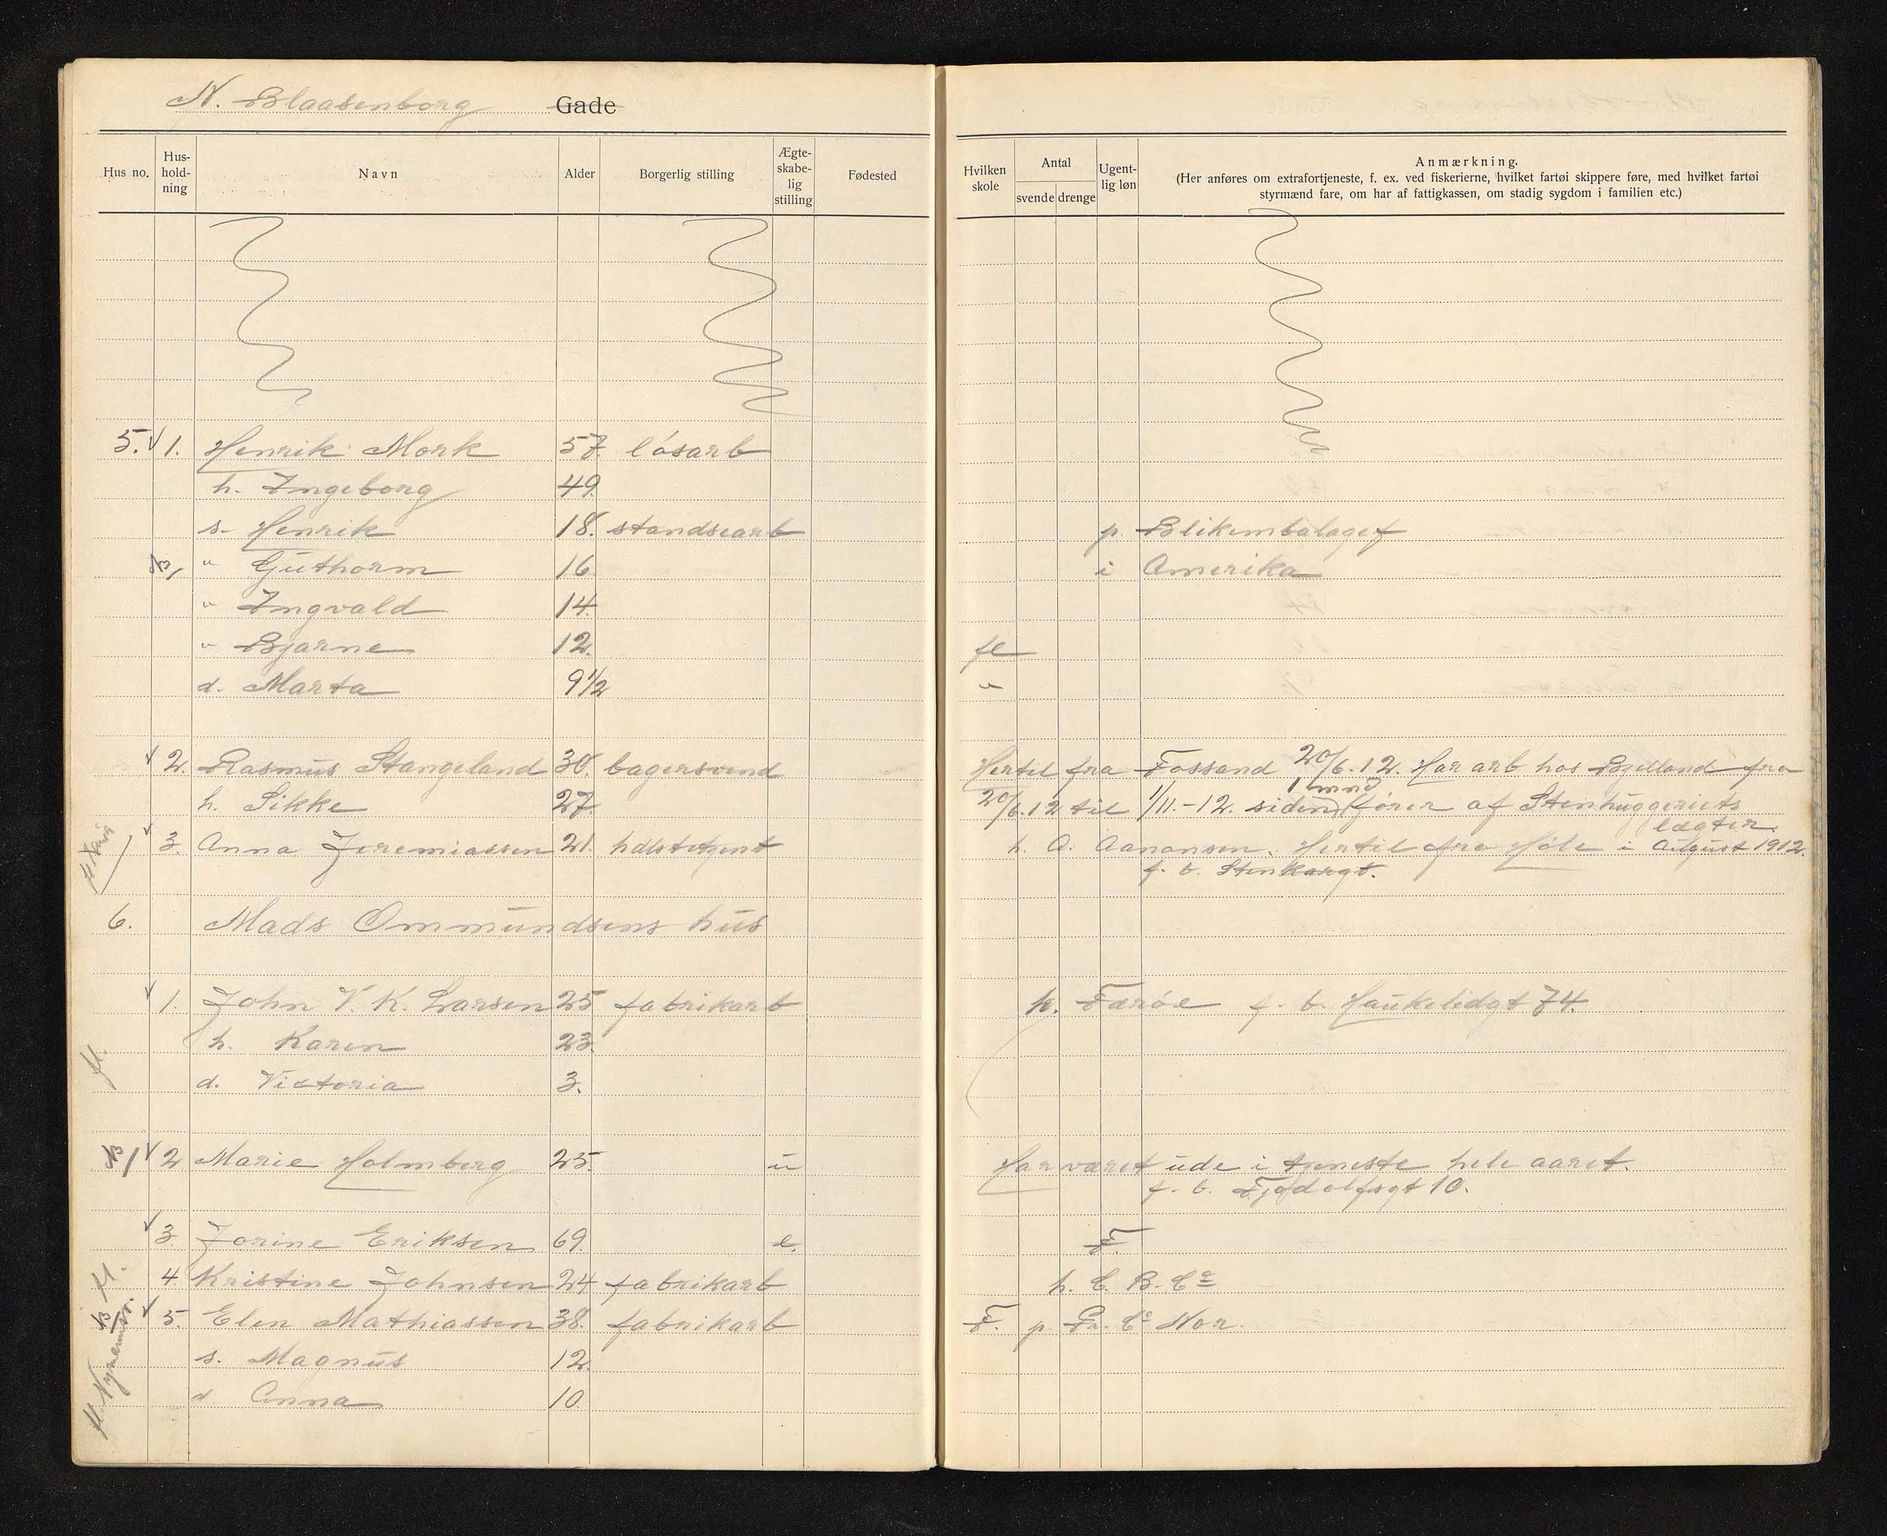 N. Blaasenborg Gade
Hus no. Hus-holdning Navn Alder Borgerlig stilling Ægte-skabe-lig stilling Fødested
Hvilken skole Antal svende drenge Ugent-lig løn Anmærkning.
(Her anføres om extrafortjeneste, f. ex. ved fiskerierne, hvilket fartøi skippere føre, med hvilket fartøi
styrmænd fare, om har af fattigkassen, om stadig sygdom i familien etc.)
5. √ 1. Henrik Mork 57 løsarb
h. Ingeborg 49.
s- Henrik 18. standsearb p. Blikembalagef
" Guthorm 16 i Amerika
" Ingvald 14.
" Bjarne 12. fl
d. Marta 9 1/2 "
√ 2. Rasmus Stangeland 30. bagersvend Hertil fra Fossand 20/6.12. Har arb hos Bjelland fra
h. Sikke 27. 20/6.12 til 1/11.-12. siden 1 mnd fører af Stenhuggeriets
lægter.
√ 3. Anna Jeremiassen 21. h. A. Aanonsen. Hertil fra Høle i August 1912.
f. b. Stenkargt.
6. Mads Ommundsens hus
√ 1. John V. K. Larsen 25 fabrikarb h. Færøe f. b. Haukelidgt 74.
fl. h. Karen 23.
d. Victoria 3.
√ 2 Marie Holmberg 25. u Har været ude i tjeneste hele aaret.
f. b. Fjodolfsgt 10.
√ 3. Jorine Eriksen 69. e. F.
4. Kristine Johnsen 24 fabrikarb h. C. B. Co
√ 5. Elen Mathiassen 38. fabrikarb F. p. Pr. Co Nor.
s. Magnus 12.
d Anna 10